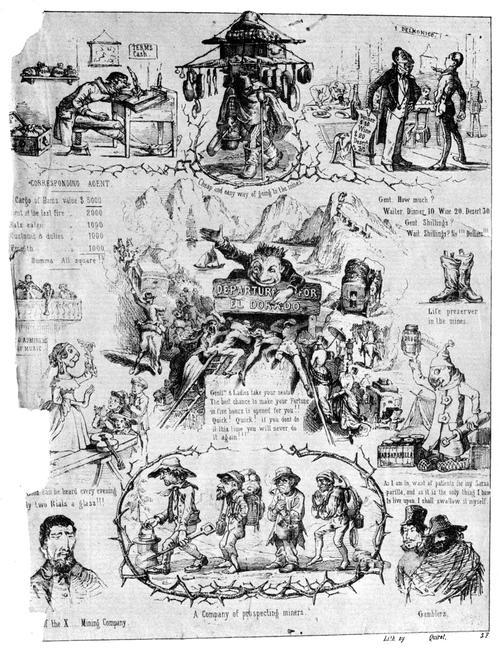 TERMS
Cash.
DELMONICO.
CORRESPONDING AGENT.
Cargo of Hams value $ 5000
at the last fire 2000
Rats eaten 1000
Customs & duties 1000
1000
Summa All square!!
Cheap and easy way of going to the mines.
Gent. How much?
Waiter. Dinner, 10 Wine 20. Desert 30
Gent. Shillings?
Wait. Shillings? No!!! Dollars!!!
DEPARTURE FOR
EL DORADO
Life preserver
in the mines.
OF MUSIC
Gent.s & Ladies take your seats!
The best chance to make your Fortune
in five hours is opened for you!!
Quick! Quick! if you dont do
it this time you will never do
it again!!!
SARSAPARILLA
can be heard every evening
two Rials a glass!!!
As I am in want of patients for my Sarsa
parilla, and as it is the only thing I have
to live upon, I shall swallow it myself.
of the X... Mining Company.
A Company of prospecting miners.
Gamblers.
Lith by Quirot, S.F.